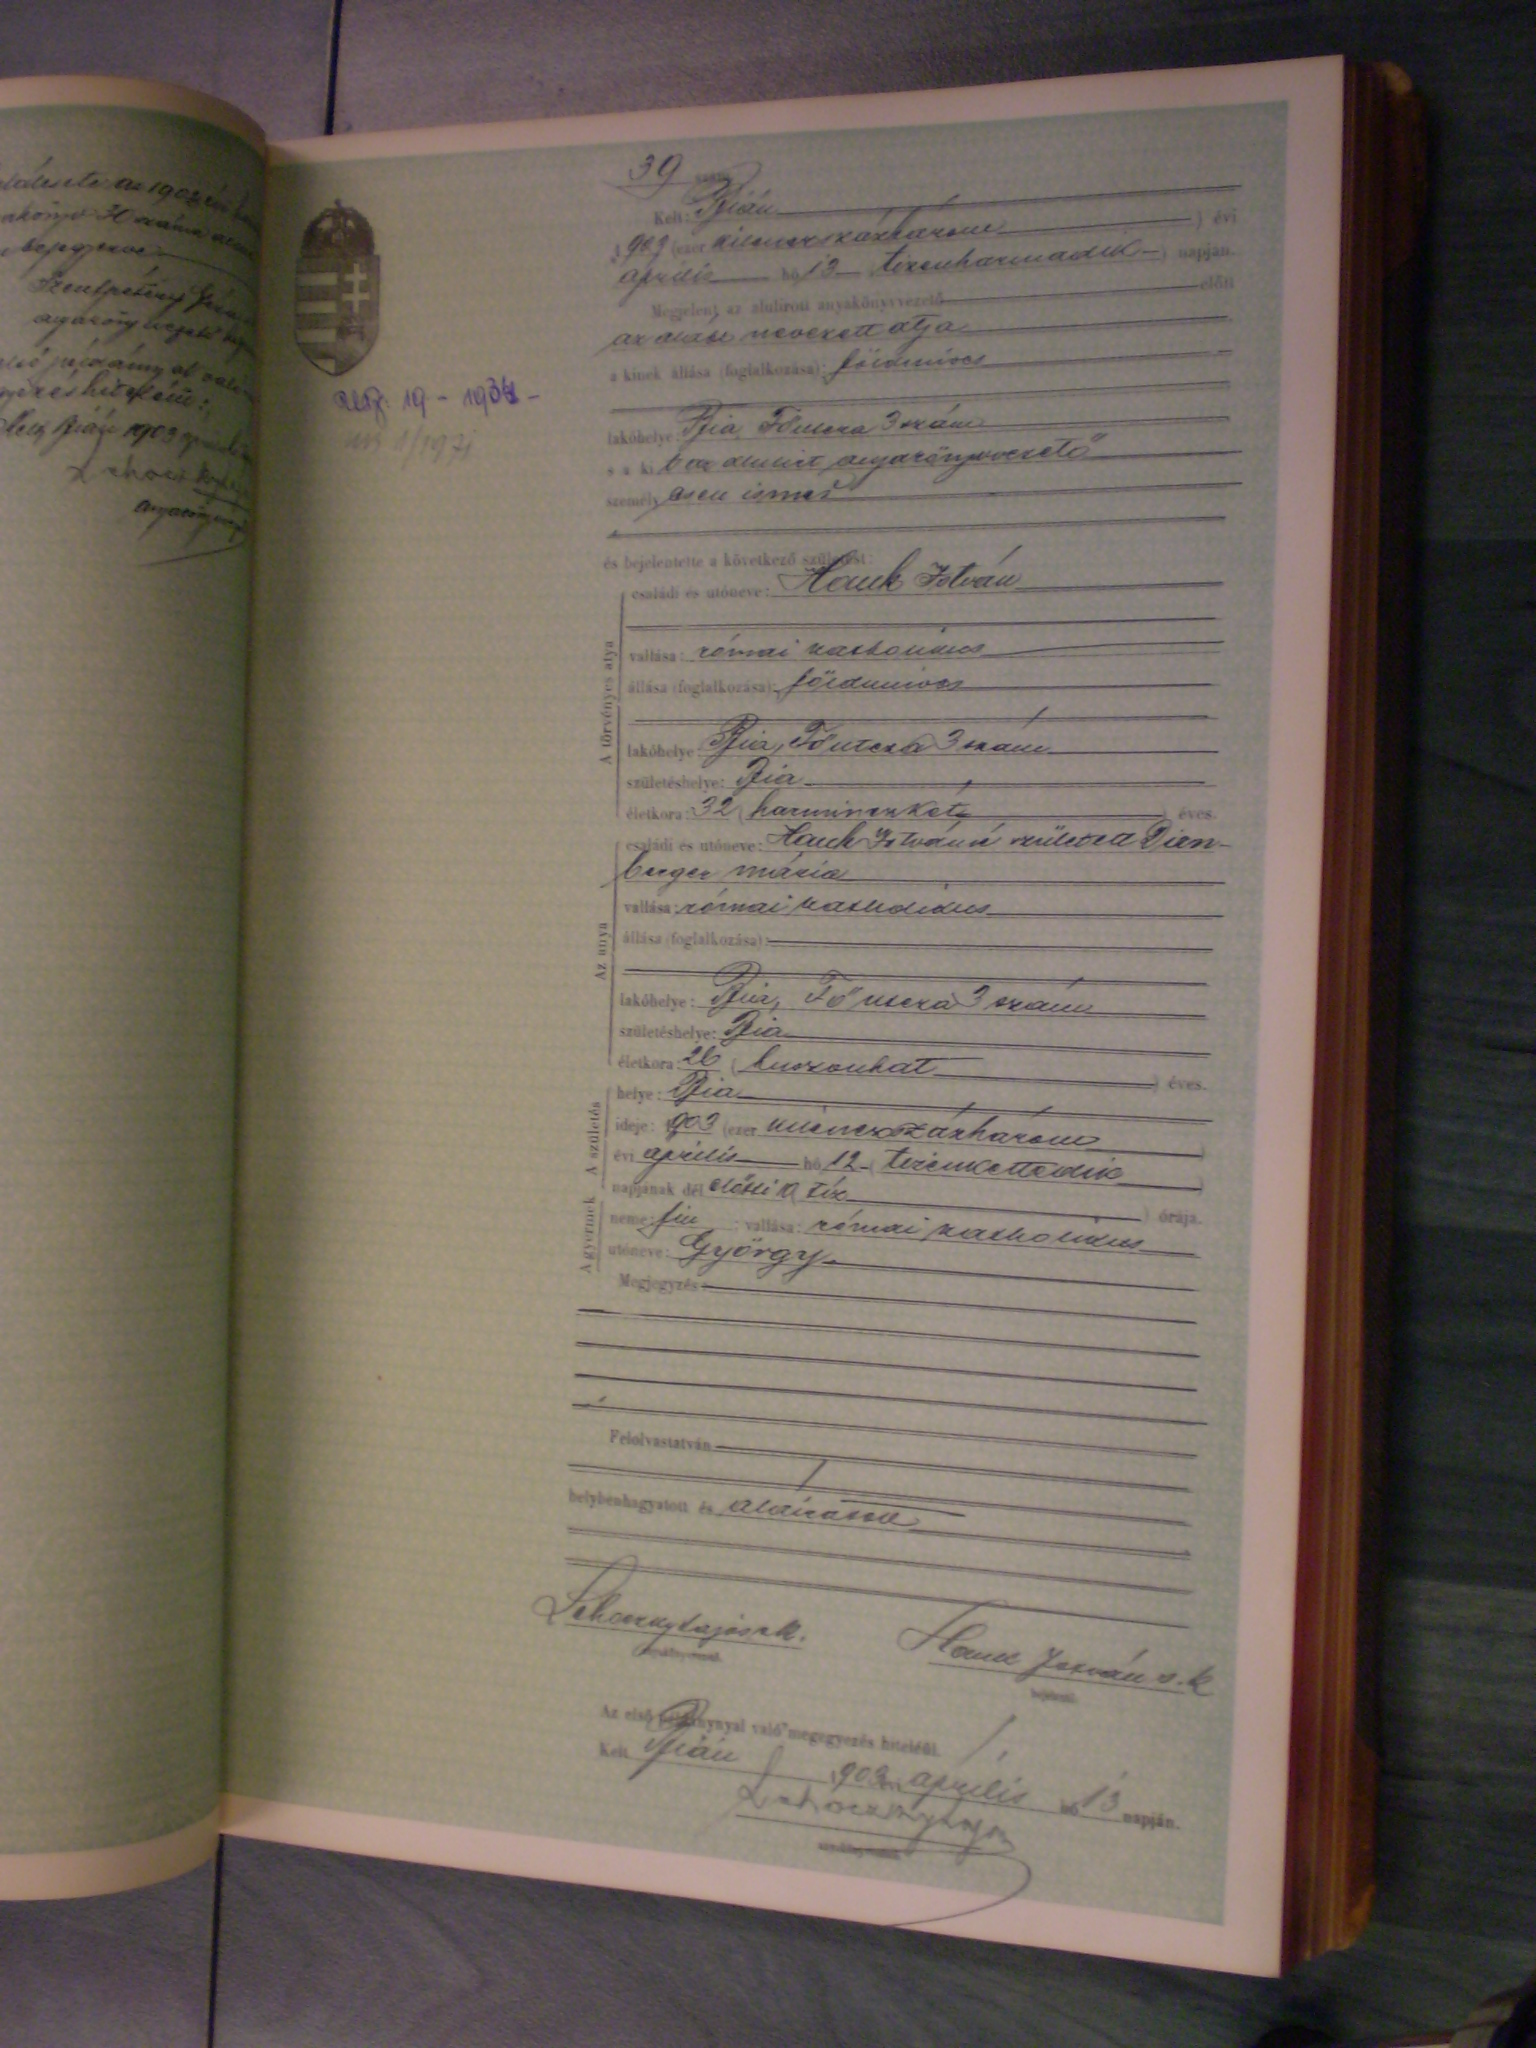 az 1903
30
bejegyezve
Bián 1903
házg. 19 - 1934 -
1/1971
39 szám
Kelt: Bián
1903 (ezer kilenczszázhárom ) évi
április hó 13 tizenharmadik ) napján.
Megjelent az alulírott anyakönyvvezető előtt
az alább nevezett atya
a kinek állása (foglalkozása): földmíves
lakóhelye: Bia Főutcza 3 szám
s a kit az alulírt anyakönyvvezető
személyesen ismer
és bejelentette a következő születést:
A törvényes atya
családi és utóneve: Hauk István
vallása: római katholikus
állása (foglalkozása): földmíves
lakóhelye: Bia, Főutcza 3 szám
születéshelye: Bia
életkora: 32 ( harminczkét ) éves.
Az anya
családi és utóneve: Hauk Istvánné született Dien-
berger mária
vallása: római katholikus
állása (foglalkozása):
lakóhelye: Bia, Főutcza 3 szám
születéshelye: Bia
életkora: 26 ( huszonhat ) éves.
A születés
helye: Bia
ideje: 1903 (ezer kilenczszázhárom )
évi április hó 12 ( tizenkettedik )
napjának dél előtti 10 ( tíz ) órája.
A gyermek
neme: fiu ; vallása: római katholikus
utóneve: György
Megjegyzés:
Felolvastatván
helybenhagyatott és aláíratott
Lehoczky Lajos s.k.
anyakönyvvezető.
Hauk István s. k
bejelentő.
Az első példánynyal való megegyezés hiteléül.
Kelt Bián 1903 évi április hó 13 napján.
Lehoczky Lajos
anyakönyvvezető.